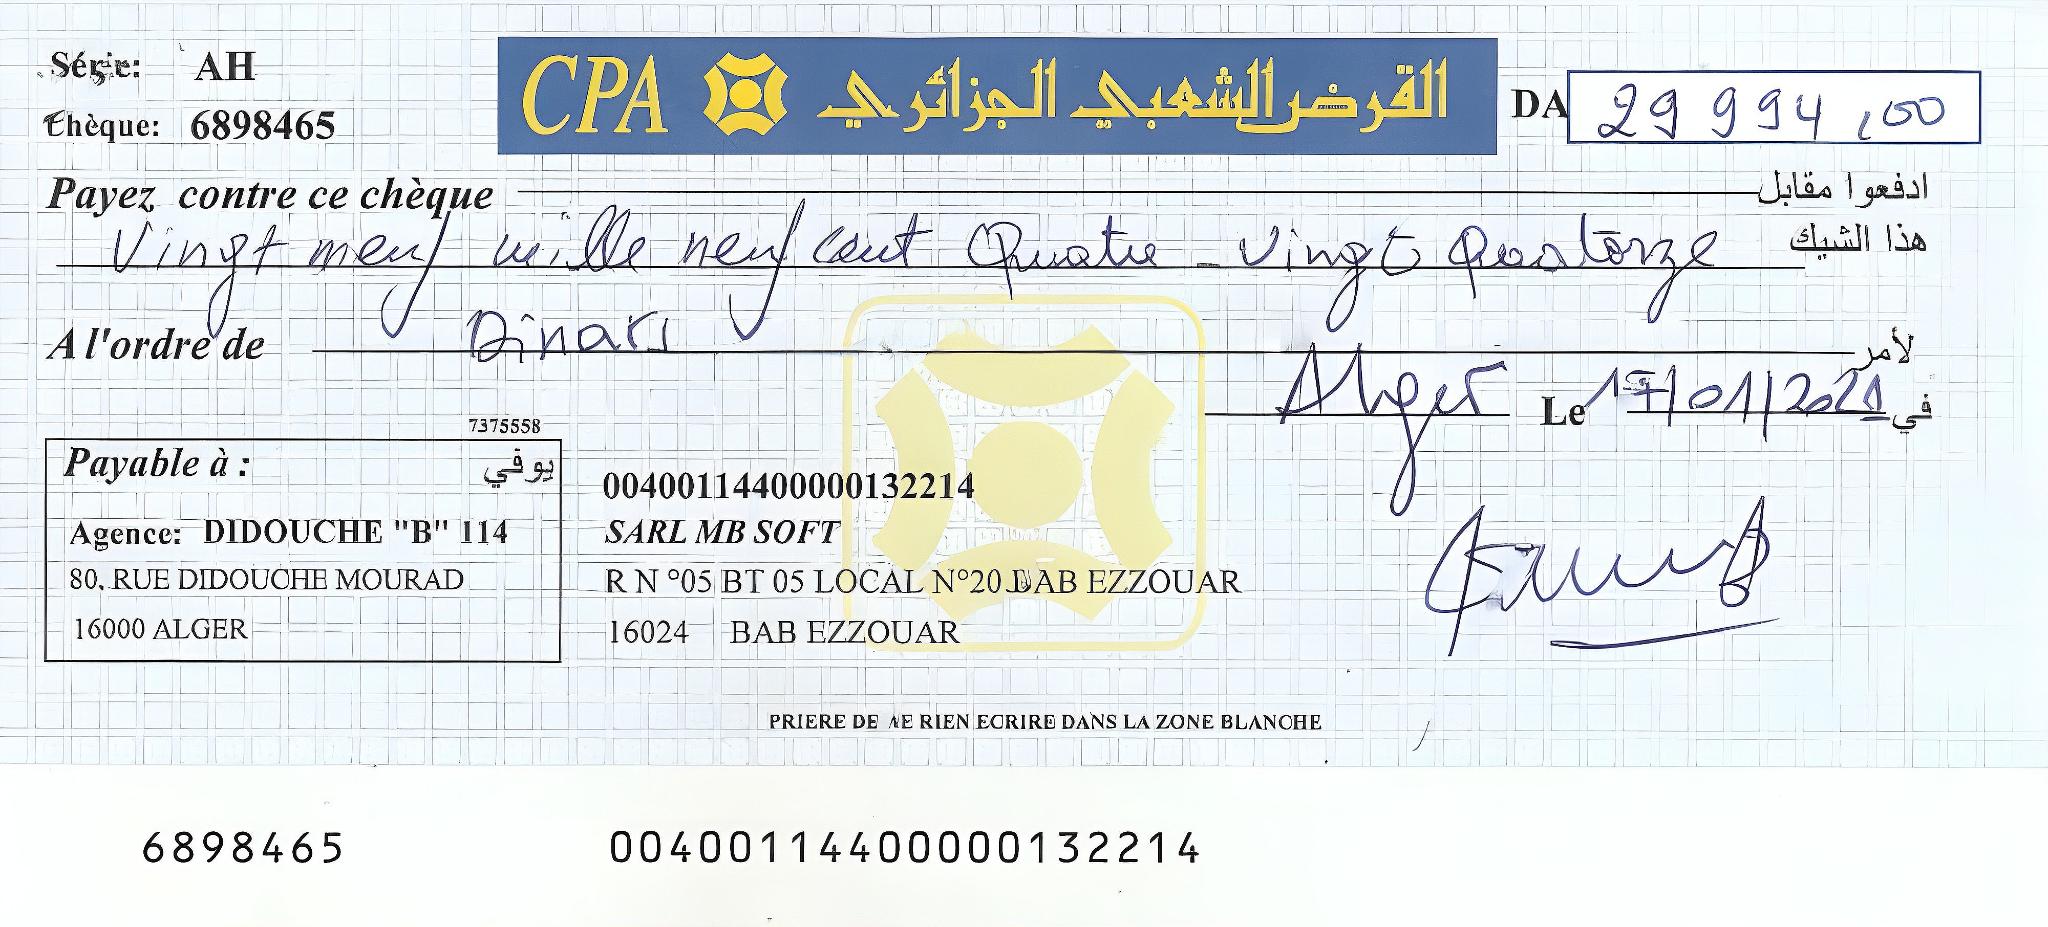 Série: AH
CPA القرض الشعبي الجزائري
DA 29 994,00
Chèque: 6898465
Payez contre ce chèque ادفعوا مقابل
هذا الشيك
Vingt neuf mille neuf cent Quatre-vingt quatorze
Dinars
A l'ordre de لأمر
Alger Le 17/01/2021 في
7375558
Payable à : يوفي
Agence: DIDOUCHE "B" 114
80, RUE DIDOUCHE MOURAD
16000 ALGER
00400114400000132214
SARL MB SOFT
R N °05 BT 05 LOCAL N°20 BAB EZZOUAR
16024 BAB EZZOUAR
PRIERE DE NE RIEN ECRIRE DANS LA ZONE BLANCHE
6898465 00400114400000132214